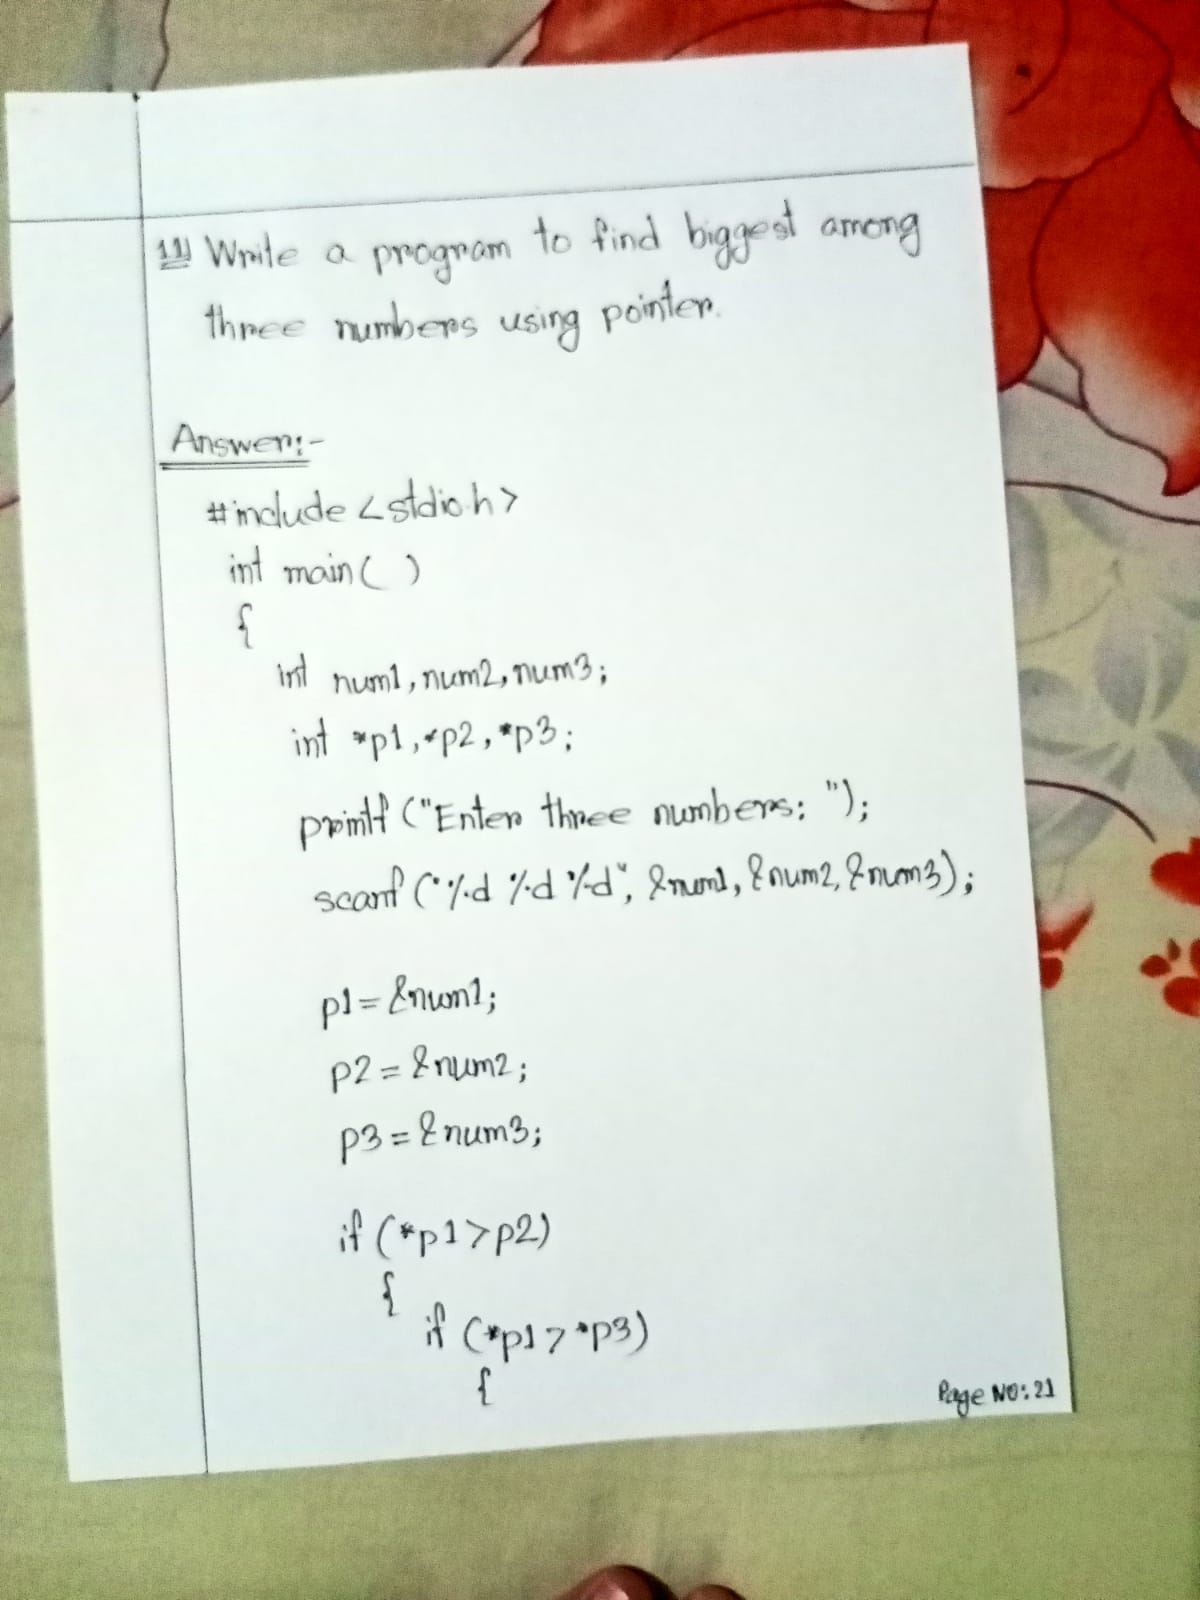 11) Write a program to find biggest among
three numbers using pointer.
Answer:-
#include <stdio.h>
int main( )
{
int num1, num2, num3;
int *p1, *p2, *p3;
printf ("Enter three numbers: ");
scanf ("%d %d %d", &num1, &num2, &num3);
p1 = &num1;
p2 = &num2;
p3 = &num3;
if (*p1 > p2)
{
if (*p1 > *p3)
{
Page NO: 21